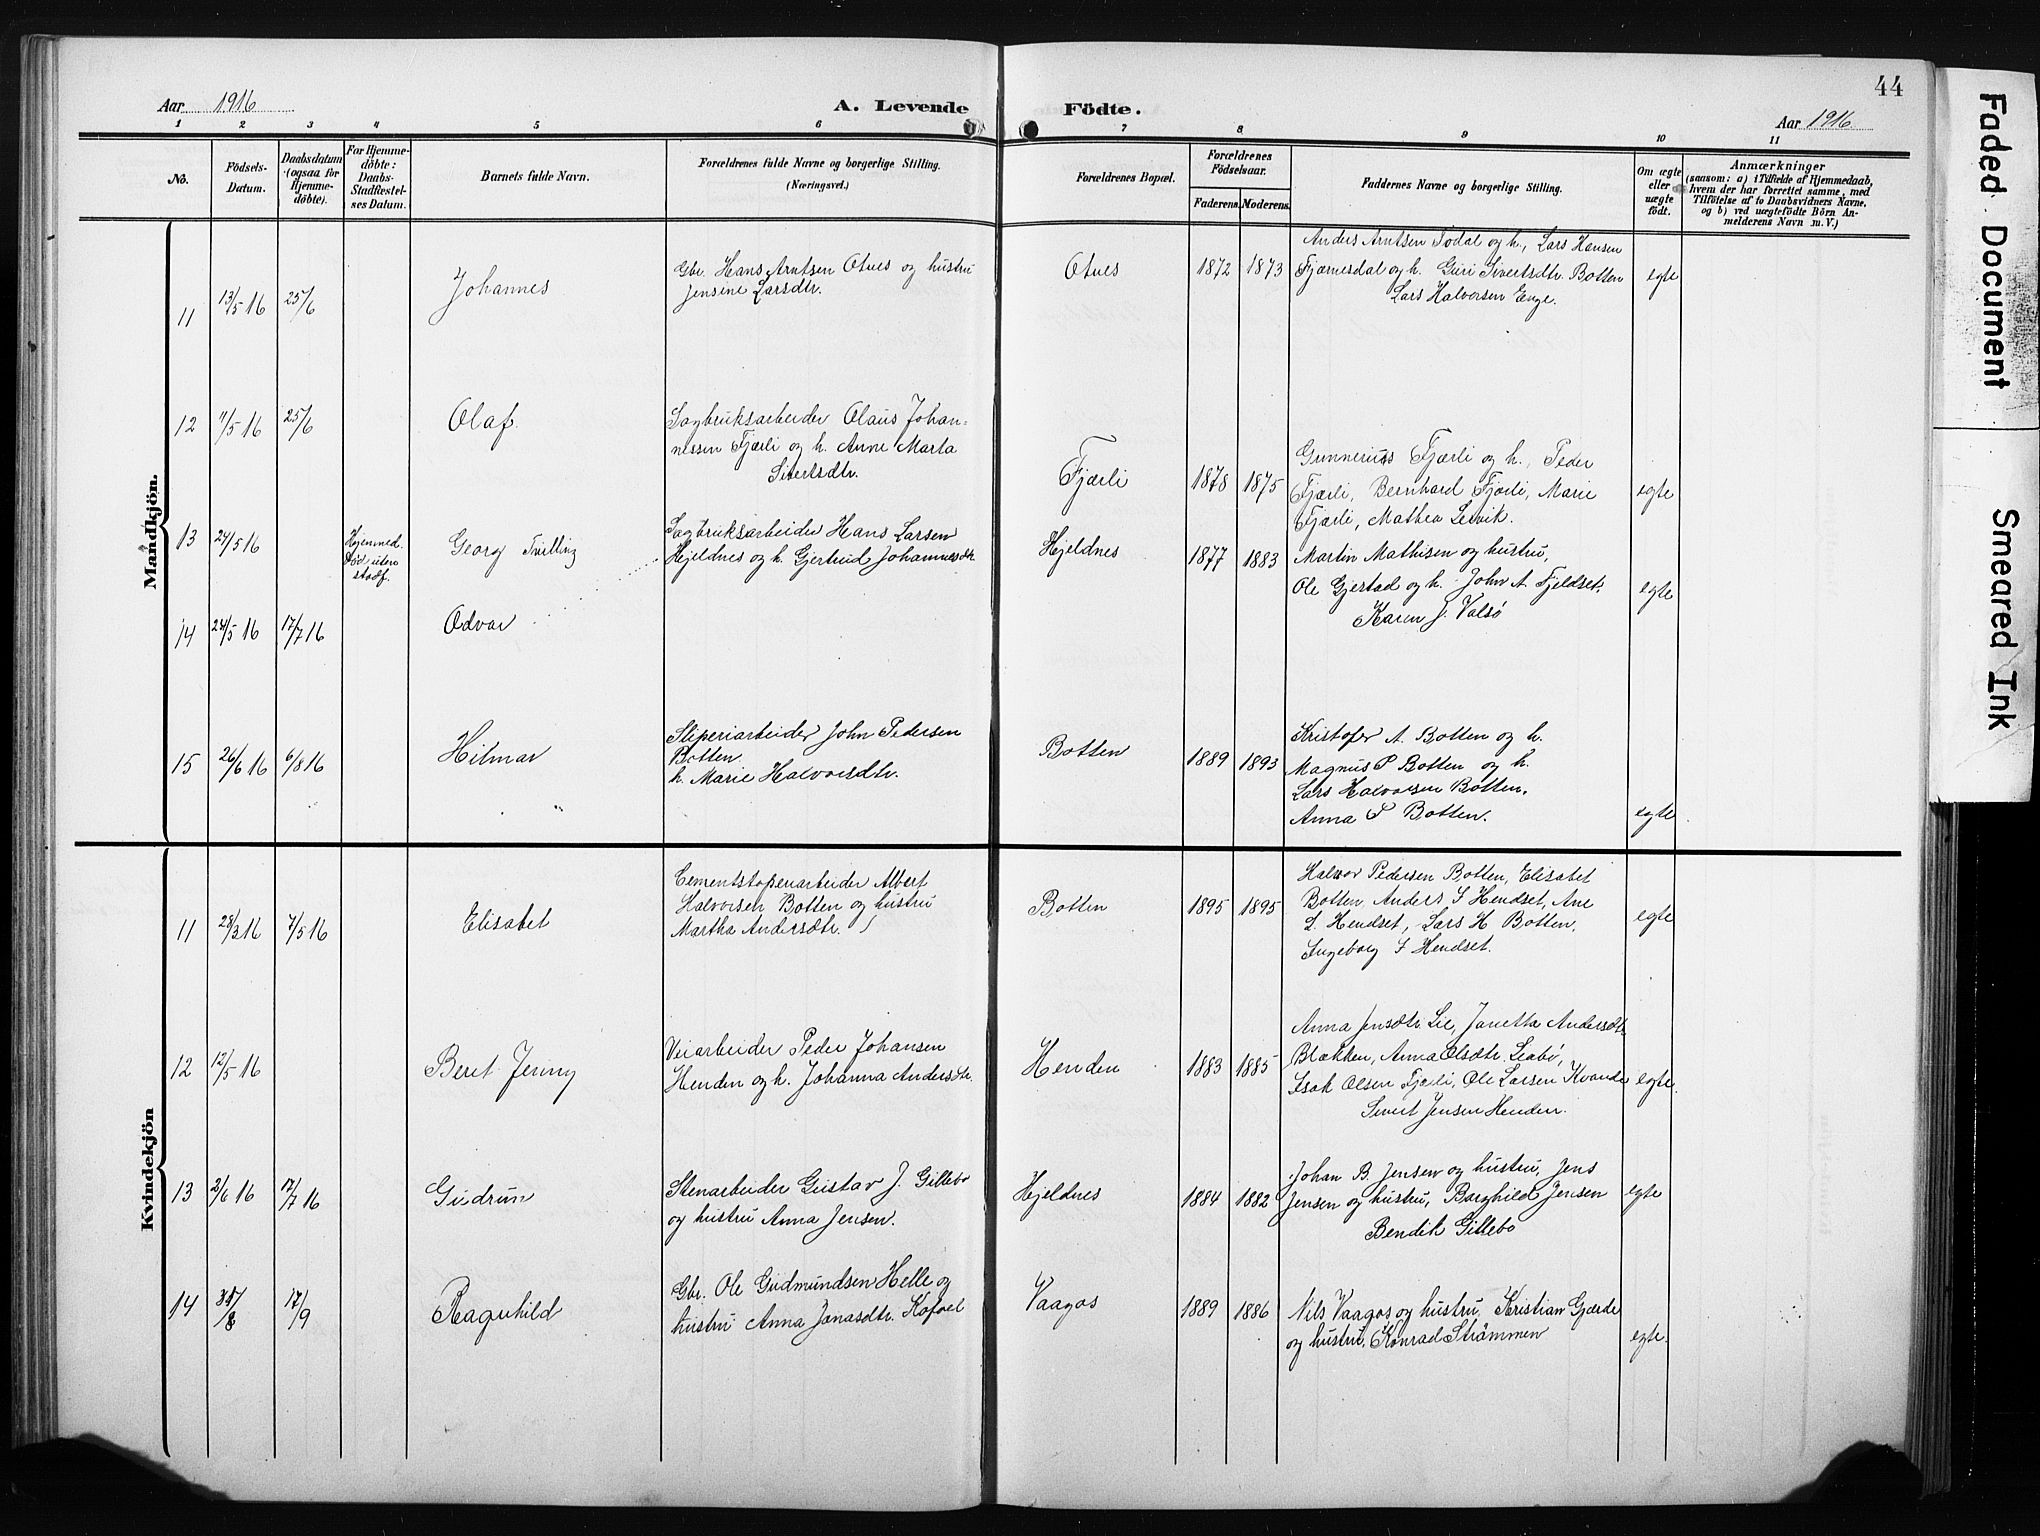 Aar 1916
A. Levende Födte.
Aar 1916
44
1 2 3 4 5 6 7 8 9 10 11
No.
Födsels-
Datum.
Daabsdatum
(ogsaa for
Hjemme-
döbte).
For Hjemme-
döbte:
Daabs-
Stadfæstel-
ses Datum.
Barnets fulde Navn.
Forældrenes fulde Navne og borgerlige Stilling.
(Næringsvei.)
Forældrenes Bopæl.
Forældrenes
Födselsaar.
Faderens. Moderens.
Faddernes Navne og borgerlige Stilling.
Om ægte
eller
uægte
födt.
Anmærkninger
(saasom: a) i Tilfælde af Hjemmedaab,
hvem der har forrettet samme, med
Tilföielse af to Daabsvidners Navne,
og b) ved uægtefödte Börn An-
melderens Navn m. V.)
Mandkjön.
11 13/5 16 25/6 Johannes
Gbr. Hans Arntsen Otnes og hustru
Jensine Larsdtr.
Otnes 1872 1873
Anders Arntsen Todal og h., Lars Hansen
Fjærnesdal og h. Guri Sivertsdtr. Botten
Lars Halvorsen Enge.
egte
12 11/5 16 25/6 Olaf
Sagbruksarbeider Olaus Johan-
nessen Fjærli og h. Anne Marta
Sivertsdtr.
Fjærli 1878 1875
Gunnerius Fjærli og h., Peder
Fjærli, Bernhard Fjærli, Marie
Fjærli, Mathea Lervik.
egte
13 24/5 16
Hjemmed.
Död uten
stadf.
Georg Tvilling
Sagbruksarbeider Hans Larsen
Hjeldnes og h. Gjertrud Johannesdtr.
Hjeldnes 1877 1883
Martin Mathisen og hustru,
Ole Gjerstad og h. John A. Fjeldset.
Karen J. Valsö
egte
14 24/5 16 17/7 16 Odvar
15 26/6 16 6/8 16 Hilmar
Sliperiarbeider John Pedersen
Botten.
h. Marie Halvorsdtr.
Botten 1889 1893
Kristofer A. Botten og h.
Magnus P Botten og h.
Lars Halvorsen Botten.
Anna P Botten.
egte
Kvindekjön
11 28/3 16 7/5 16 Elisabet
Cementstöperiarbeider Albert
Halvorsen Botten og hustru
Martha Andersdtr.
Botten 1895 1895
Halvor Pedersen Botten, Elisabet
Botten, Anders S Hendset, Ane
L. Hendset, Lars H Botten,
Ingeborg S Hendset.
egte
12 12/5 16 Beret Jenny
Veiarbeider Peder Johansen
Henden og h. Johanna Andersdtr.
Henden 1883 1885
Anna Jensdtr. Lie, Janetta Andersdtr.
Blækken, Anna Olsdtr. Leabö,
Isak Olsen Fjærli, Ole Larsen Kvande
Sivert Jensen Henden.
egte
13 2/6 16 17/7 16 Gudrun
Stenarbeider Gustav J. Gillebo
og hustru Anna Jensen.
Hjeldnes 1884 1882
Johan B. Jensen og hustru, Jens
Jensen og hustru, Borghild Jensen
Bendik Gillebo
egte
14 17/9 Ragnhild
Gbr. Ole Gudmundsen Helle og
hustru Anna Jonasdtr. Kofoel
Vaagos 1889 1886
Nils Vaagos og hustru, Kristian Gjærde
og hustru, Konrad Strömmen
egte.
Faded Document
Smeared Ink